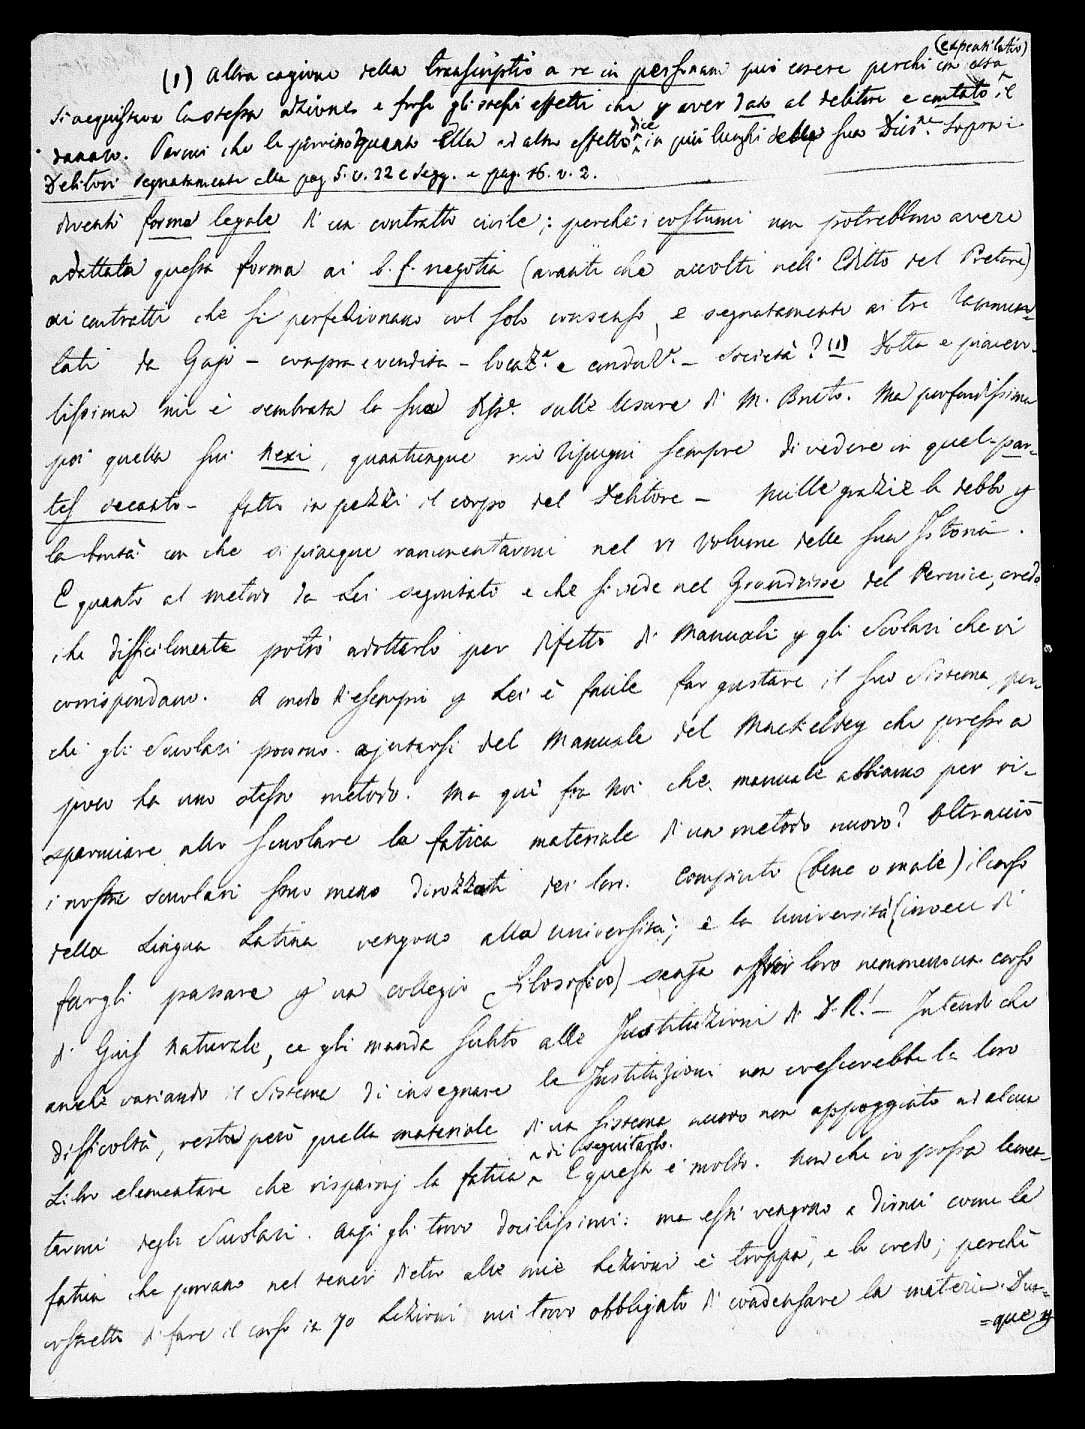 (expensilatio)
(1) Altra cagione della transcriptio a re in personam può essere perchè con essa
si acquistava la stessa azione e forse gli stessi effetti che p aver dato al debitore e contato il
danaro. Parmi che lo provino quanto Ella ad altro effetto dice in più luoghi della sua Diss.ne sopra i
Debitori segnatamente alla pag 5. v. 22 e segg. e pag. 16. v. 2.
diventò forma legale di un contratto civile; perchè i costumi non potrebbono avere
adattata questa forma ai b. f. negotia (avanti che accolti nell' Editto del Pretore)
ai contratti che si perfezionano col solo consenso, e segnatamente ai tre rammen-
tati da Gajo - compra e vendita - locaz.e e conduz.e - società? (1) Dotta e piacevo-
lissima mi è sembrata la sua Diss.e sulle Usure di M. Bruto. Ma profondissima
poi quella sui Nexi, quantunque mi ripugni sempre di vedere in quel par-
tes secanto - fatto in pezzi il corpo del Debitore - Mille grazie le debbo p
la bontà con che si piacque rammentarmi nel VI volume della sua Istoria.
E quanto al metodo da Lei seguitato e che si vede nel Grundrisse del Pernice, credo
che difficilmente potrò adottarlo per difetto di Manuali p gli Scolari che vi
corrispondano. A modo d'esempio p Lei è facile far gustare il suo sistema, per-
chè gli Scolari possono ajutarsi del Manuale del Mackeldey che presso a
poco ha uno stesso metodo. Ma quì fra noi che manuale abbiamo per ri-
sparmiare allo scuolare la fatica materiale di un metodo nuovo? Oltracciò
i nostri scuolari sono meno dirozzati dei loro. Compiuto (bene o male) il corso
della Lingua Latina vengono alla università; e la Università (invece di
fargli passare p un collegio filosofico) senza offrir loro nemmeno un corso
di Gius Naturale, ce gli manda subito alle Instituzioni di D. R.! - Intendo che
anche variando il sistema di insegnare le Instituzioni non crescerebbe la loro
difficoltà, resta però quella materiale di un sistema nuovo non appoggiato ad alcun
Libro elementare che risparmj la fatica di seguitarlo. E questa è molta. Non che io possa lamen-
tarmi degli Scuolari. Anzi gli trovo docilissimi: ma essi vengono a dirmi come la
fatica che provano nel tener dietro alle mie Lezioni è troppa, e lo credo; perchè
costretto di fare il corso in 70 Lezioni mi trovo obbligato di condensare la materia. Dun-
=que p